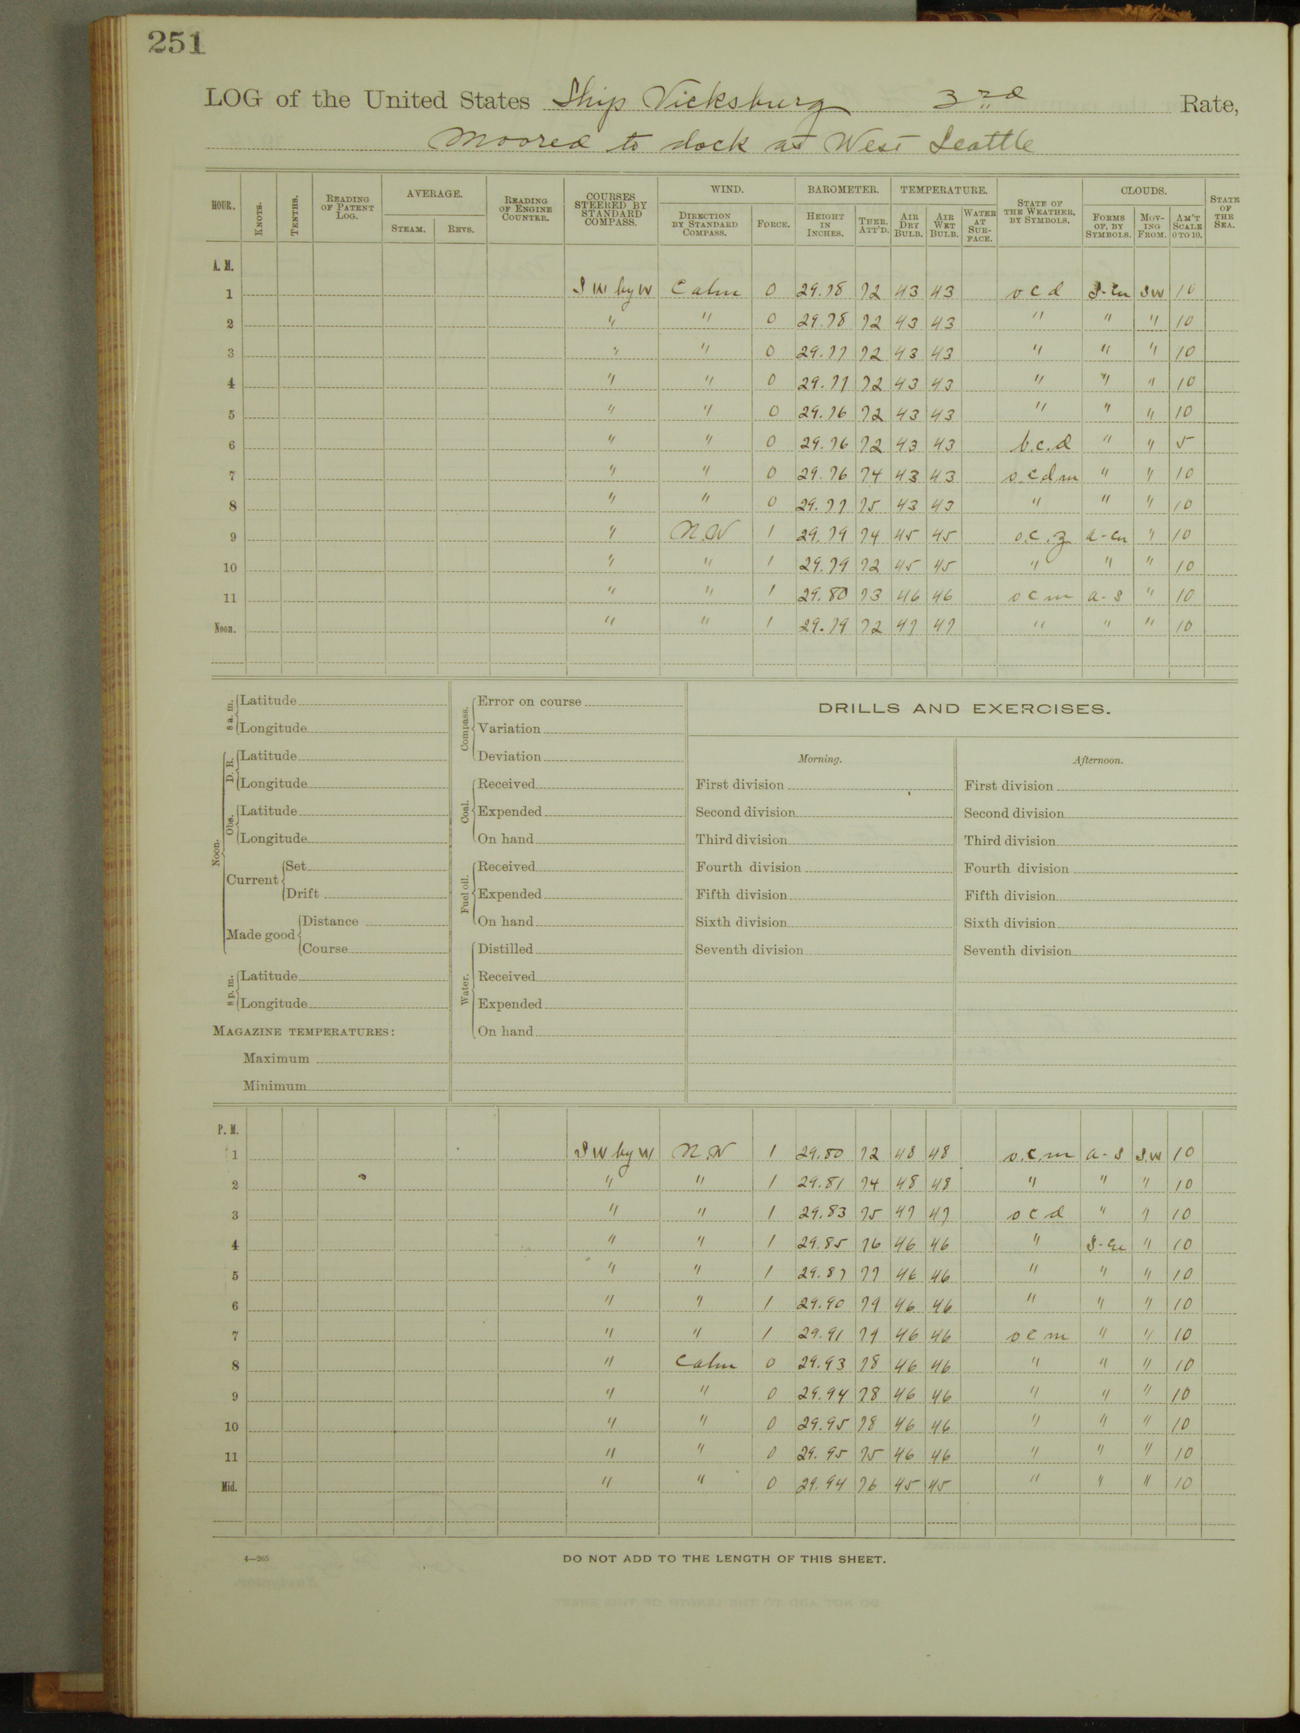 251
LOG of the United States Ship Vicksburg 3rd Rate,
Moored to dock at West Seattle
HOUR. KNOTS. TENTHS. READING OF PATENT LOG. AVERAGE. STEAM. REVS. READING OF ENGINE COUNTER. COURSES STEERED BY STANDARD COMPASS. WIND. DIRECTION BY STANDARD COMPASS. FORCE. BAROMETER. HEIGHT IN INCHES. THER. ATT'D. TEMPERATURE. AIR DRY BULB. AIR WET BULB. WATER AT SURFACE. STATE OF THE WEATHER, BY SYMBOLS. CLOUDS. FORMS OF, BY SYMBOLS. MOVING FROM. AM'T SCALE 0 TO 10. STATE OF THE SEA.
A. M.
1 SW by W Calm 0 29.78 72 43 43 o c d S-Cu SW 10
2 " " 0 29.78 72 43 43 " " " 10
3 " " 0 29.77 72 43 43 " " " 10
4 " " 0 29.77 72 43 43 " " " 10
5 " " 0 29.76 72 43 43 " " " 10
6 " " 0 29.76 72 43 43 b.c.d " " 5
7 " " 0 29.76 74 43 43 o.c d m " " 10
8 " " 0 29.77 75 43 43 " " " 10
9 " N.W 1 29.79 74 45 45 o.c.z a-cu " 10
10 " " 1 29.79 72 45 45 " " " 10
11 " " 1 29.80 73 46 46 o c m a-s " 10
Noon. " " 1 29.79 72 47 47 " " " 10
8 a. m. Latitude
Longitude
Noon. D. R. Latitude
Longitude
Obs. Latitude
Longitude
Current Set
Drift
Made good Distance
Course
8 p. m. Latitude
Longitude
MAGAZINE TEMPERATURES:
Maximum
Minimum
Compass. Error on course
Variation
Deviation
Coal. Received
Expended
On hand
Fuel oil. Received
Expended
On hand
Water. Distilled
Received
Expended
On hand
DRILLS AND EXERCISES.
Morning.
First division
Second division
Third division
Fourth division
Fifth division
Sixth division
Seventh division
Afternoon.
First division
Second division
Third division
Fourth division
Fifth division
Sixth division
Seventh division
P. M.
1 SW by W N.W 1 29.80 72 48 48 o.c.m a-s S.W 10
2 " " 1 29.81 74 48 48 " " " 10
3 " " 1 29.83 75 47 47 o c d " " 10
4 " " 1 29.85 76 46 46 " S-Cu " 10
5 " " 1 29.87 77 46 46 " " " 10
6 " " 1 29.90 79 46 46 " " " 10
7 " " 1 29.91 79 46 46 o c m " " 10
8 " Calm 0 29.93 78 46 46 " " " 10
9 " " 0 29.94 78 46 46 " " " 10
10 " " 0 29.95 78 46 46 " " " 10
11 " " 0 29.95 75 46 46 " " " 10
Mid. " " 0 29.94 76 45 45 " " " 10
4—265
DO NOT ADD TO THE LENGTH OF THIS SHEET.